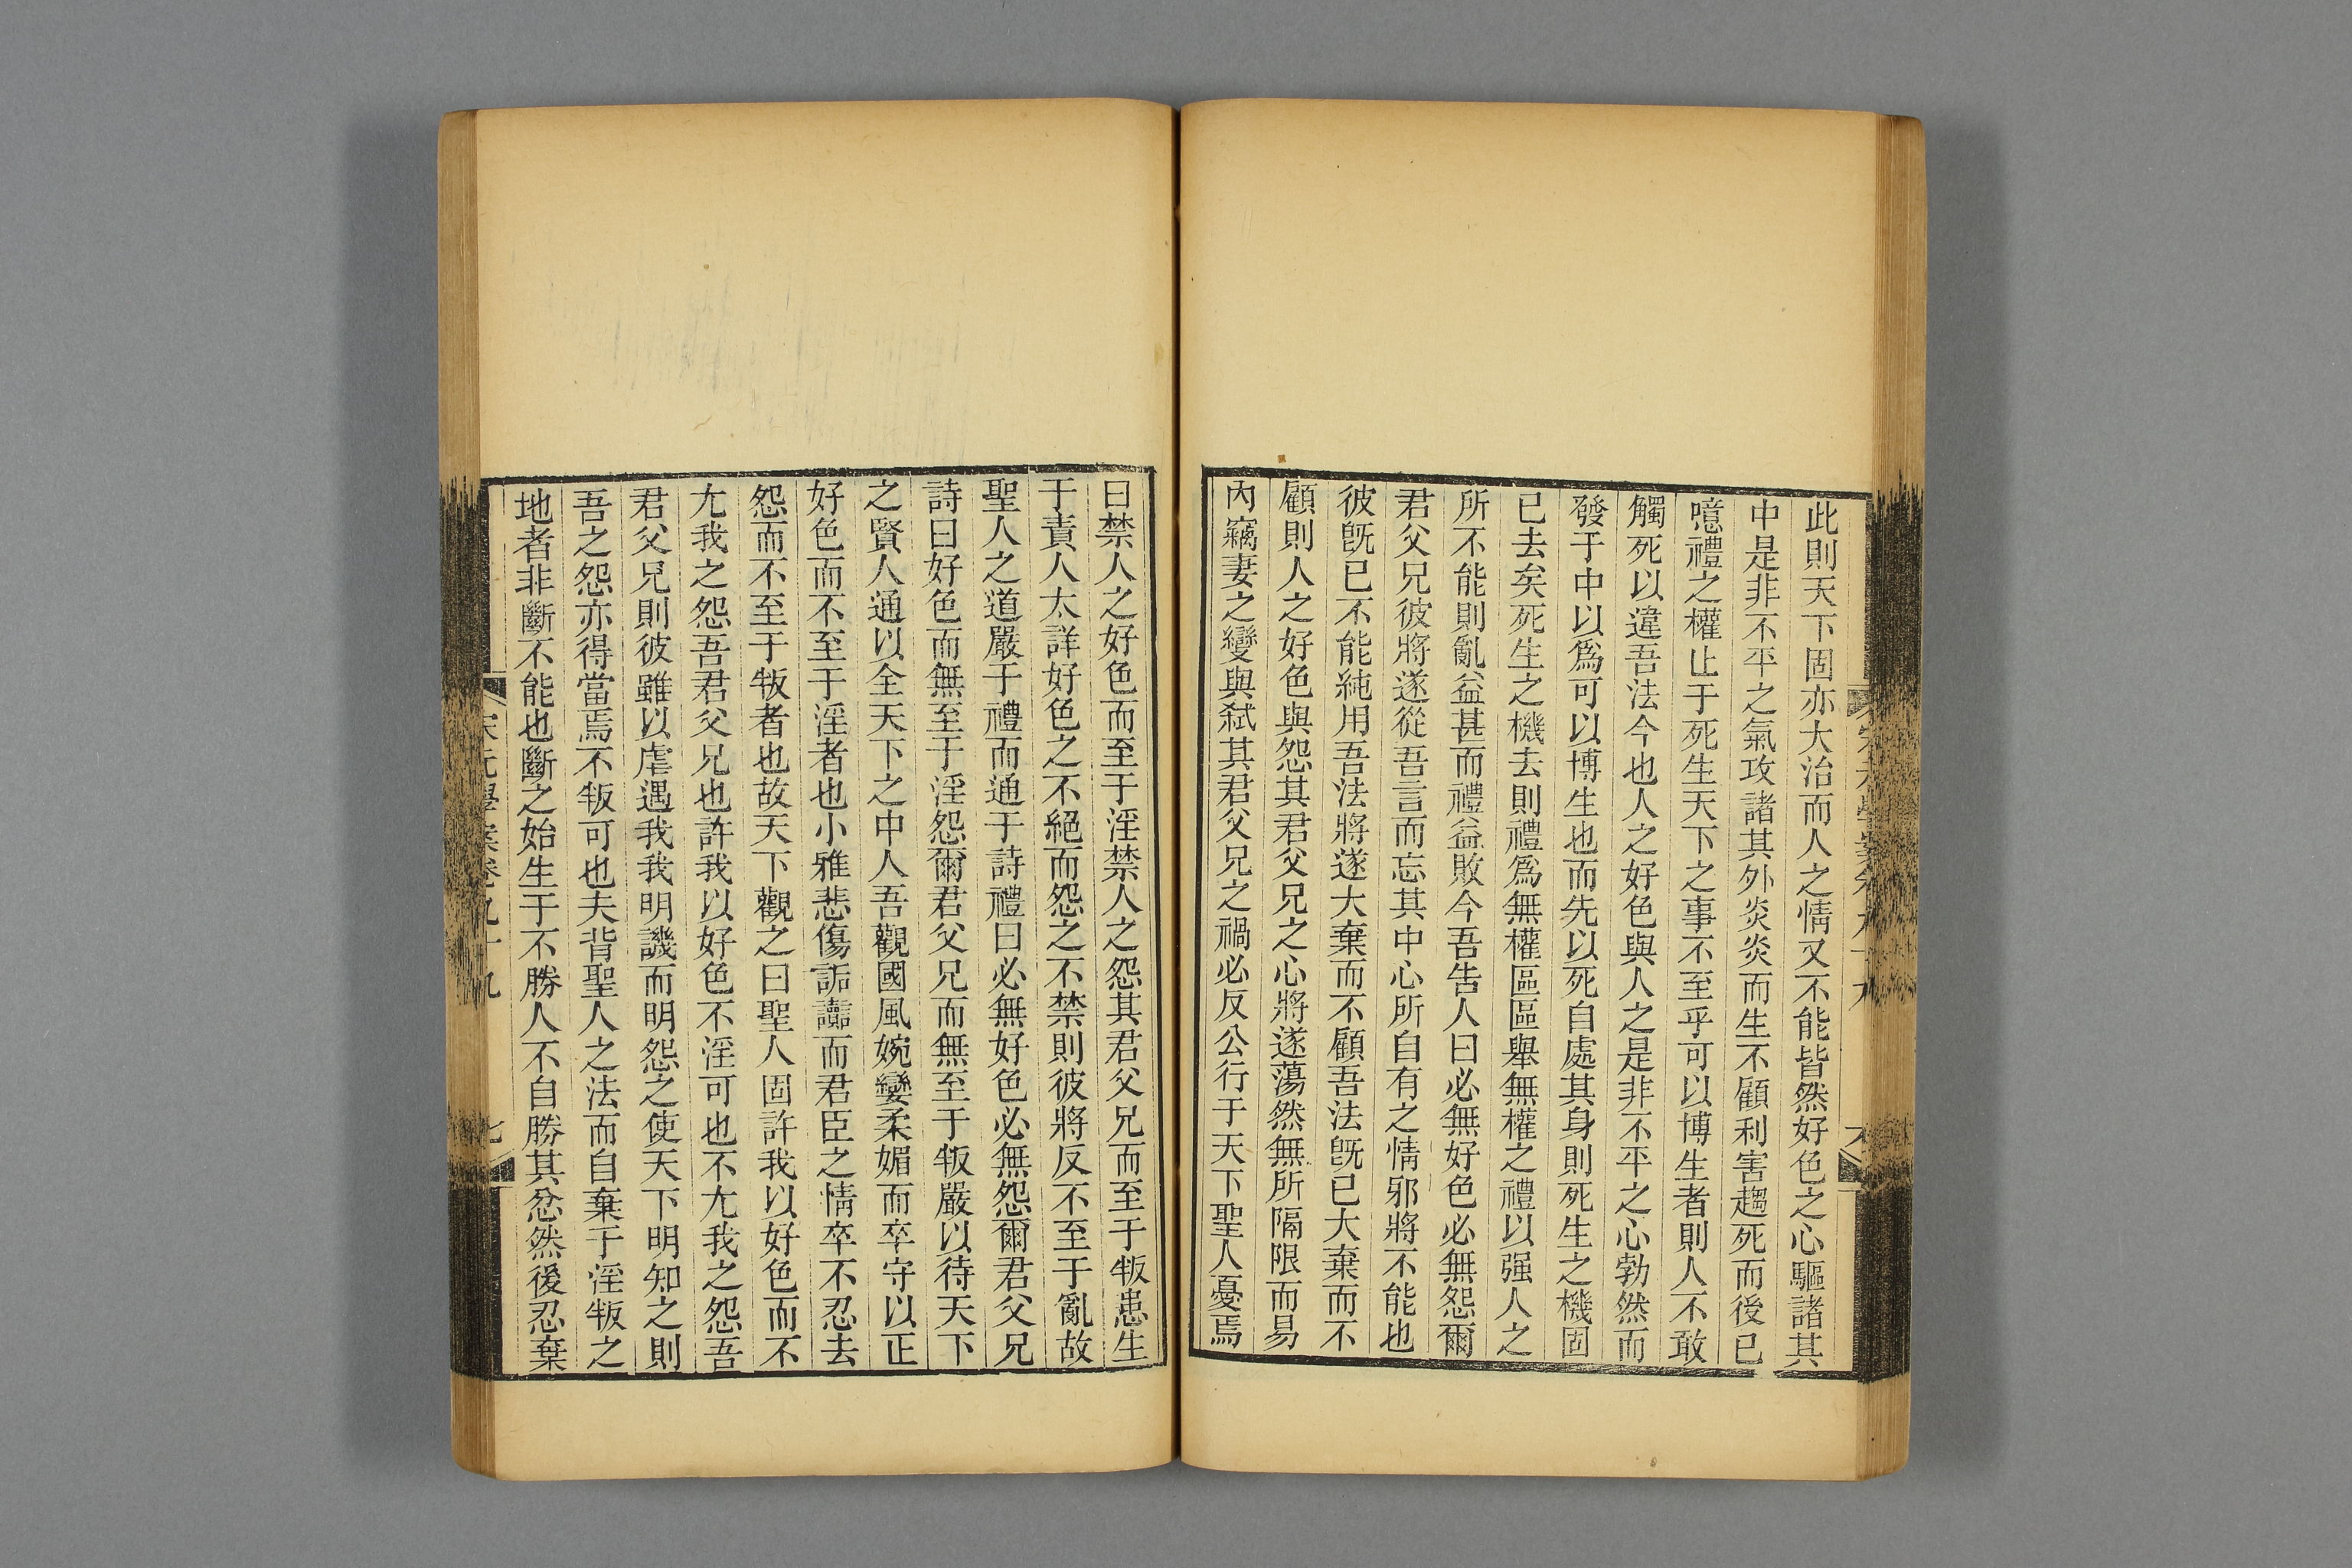 此則天下固亦大治而人之情又不能皆然好色之心驅諸其
中是非不平之氣攻諸其外炎炎而生不顧利害趨死而後已
噫禮之權止于死生天下之事不至乎可以博生者則人不敢
觸死以違吾法今也人之好色與人之是非不平之心勃然而
發于中以爲可以博生也而先以死自處其身則死生之機固
已去矣死生之機去則禮爲無權區區舉無權之禮以强人之
所不能則亂益甚而禮益敗今吾告人曰必無好色必無怨爾
君父兄彼將遂從吾言而忘其中心所自有之情邪將不能也
彼既已不能純用吾法將遂大棄而不顧吾法既已大棄而不
顧則人之好色與怨其君父兄之心將遂蕩然無所隔限而易
內竊妻之變與弑其君父兄之禍必反公行于天下聖人憂焉
曰禁人之好色而至于淫禁人之怨其君父兄而至于叛患生
于責人太詳好色之不絕而怨之不禁則彼將反不至于亂故
聖人之道嚴于禮而通于詩禮曰必無好色必無怨爾君父兄
詩曰好色而無至于淫怨爾君父兄而無至于叛嚴以待天下
之賢人通以全天下之中人吾觀國風婉孌柔媚而卒守以正
好色而不至于淫者也小雅悲傷詬讟而君臣之情卒不忍去
怨而不至于叛者也故天下觀之曰聖人固許我以好色而不
尤我之怨吾君父兄也許我以好色不淫可也不尤我之怨吾
君父兄則彼雖以虐遇我我明譏而明怨之使天下明知之則
吾之怨亦得當焉不叛可也夫背聖人之法而自棄于淫叛之
地者非斷不能也斷之始生于不勝人不自勝其忿然後忍棄
宋元學案卷九十九
七